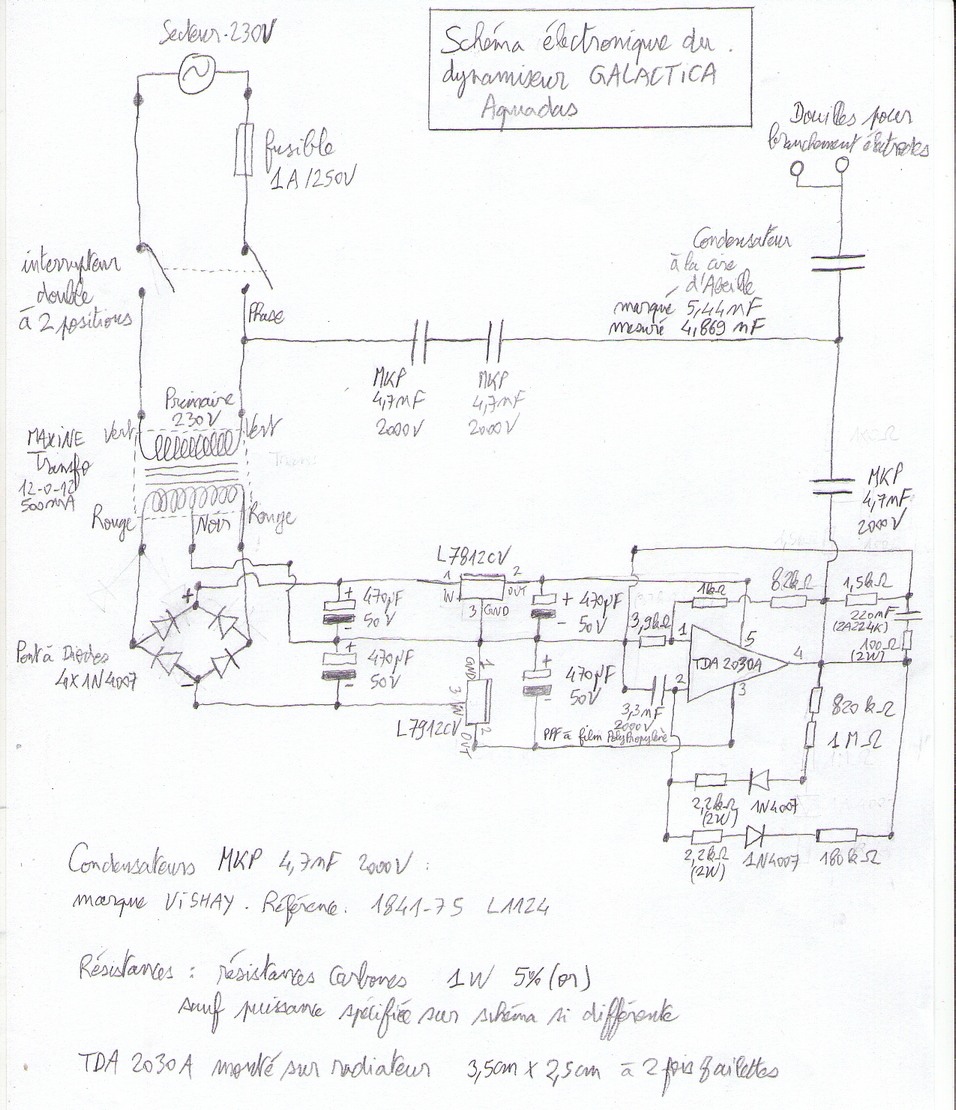 Secteur 230V
Schéma électronique du
dynamiseur GALACTICA
Aquadas
fusible
1A/250V
Douilles pour
branchement électrodes
interrupteur
double
à 2 positions
Phase
Condensateur
à la cire
d'Abeille
marqué 5,44 nF
mesuré 4,869 nF
MKP
4,7nF
2000V
MKP
4,7nF
2000V
MAXINE
Transfo
12-0-12
500mA
Primaire
230V
Vert
Vert
Rouge
Noir
Rouge
MKP
4,7nF
2000V
L7812CV
1
IN
2
OUT
3
GND
+
470µF
50V
-
+
470µF
50V
-
+
470µF
50V
-
+
470µF
50V
-
Pont à Diodes
4X1N4007
+
-
L7912CV
1
GND
3
IN
2
OUT
3,9kΩ
1kΩ
82kΩ
1,5kΩ
220nF
(2A224K)
100Ω
(2W)
TDA 2030A
1
2
3
4
5
3,3nF
2000V
PPF à film PolyPropylène
820kΩ
1MΩ
2,2kΩ
(2W)
1N4007
2,2kΩ
(2W)
1N4007
180kΩ
Condensateurs MKP 4,7nF 2000V :
marque ViSHAY. Référence. 1841-75 L1124
Résistances : résistances Carbones 1W 5% (or)
sauf puissance spécifiée sur schéma si différente
TDA 2030A monté sur radiateur 3,5cm X 2,5cm à 2 fois